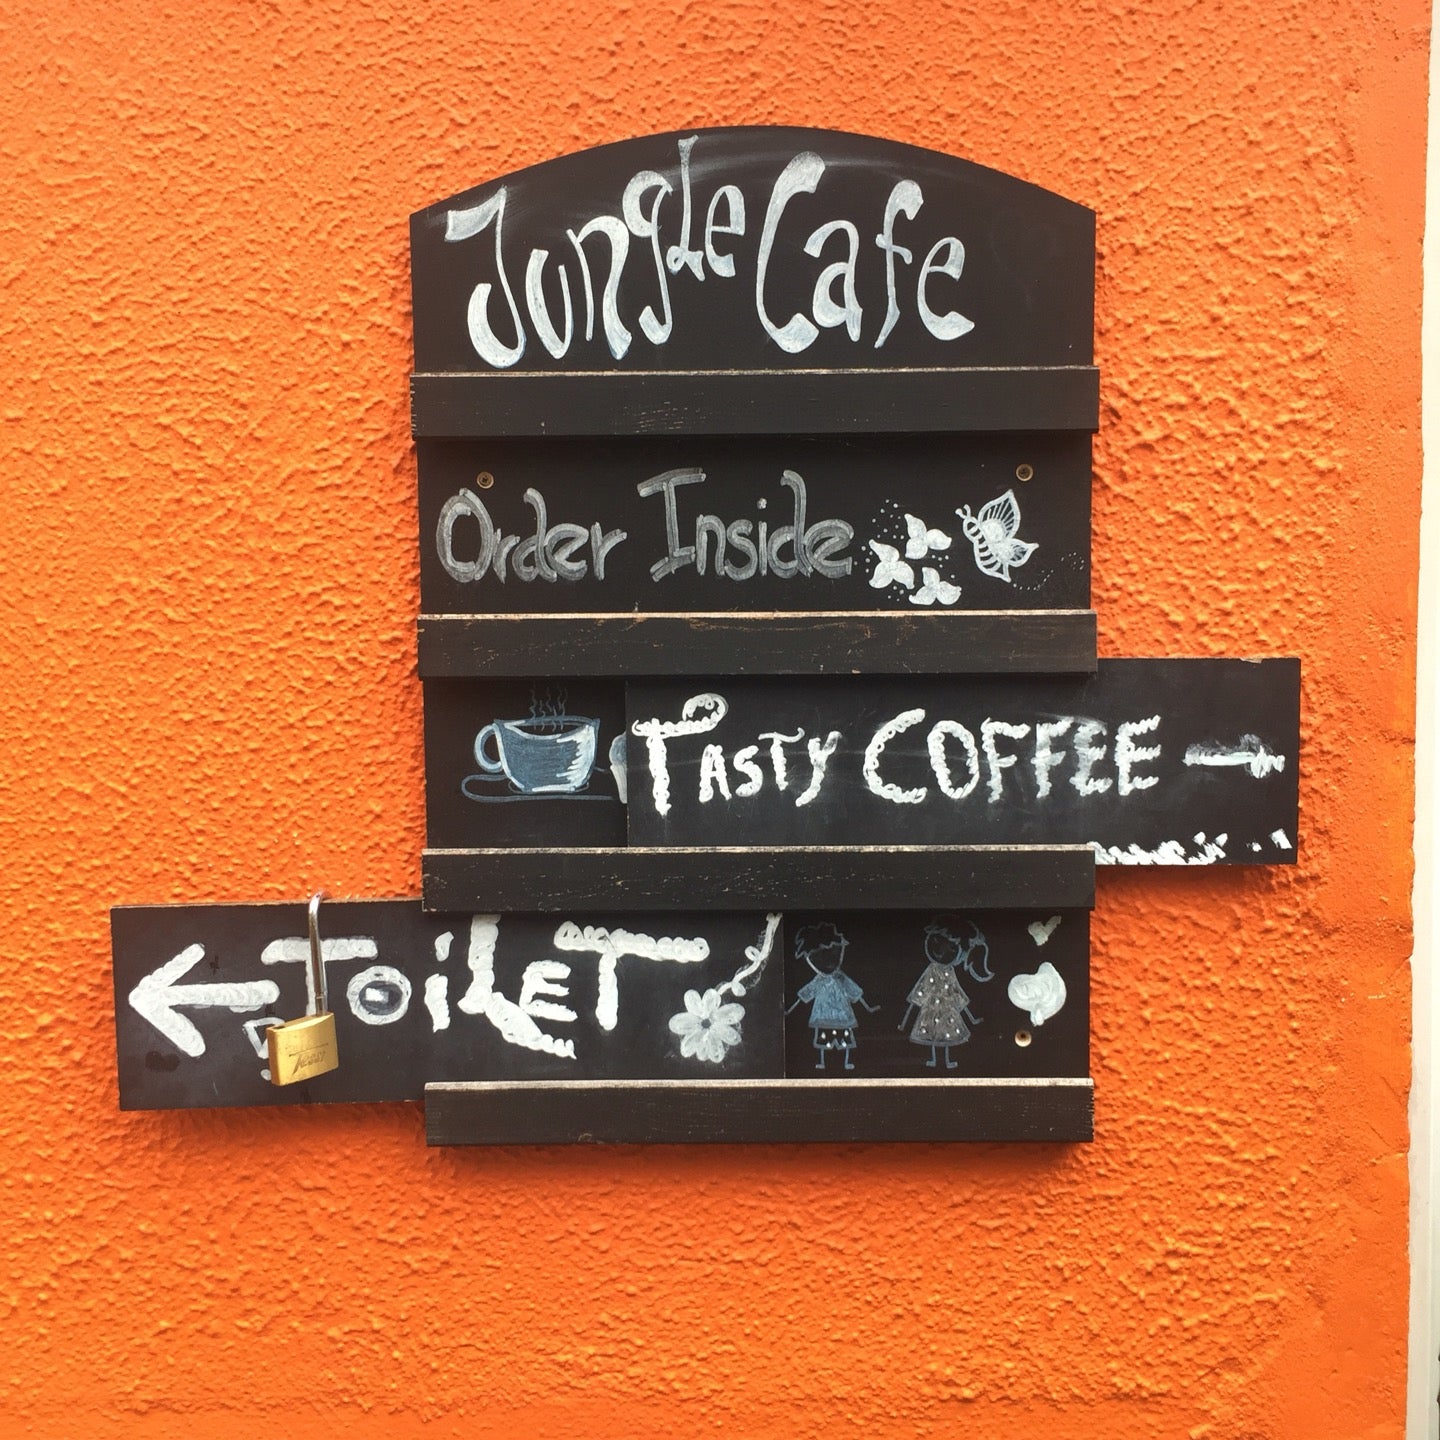 Jungle Cafe
Order Inside
Tasty COFFEE
TOiLET